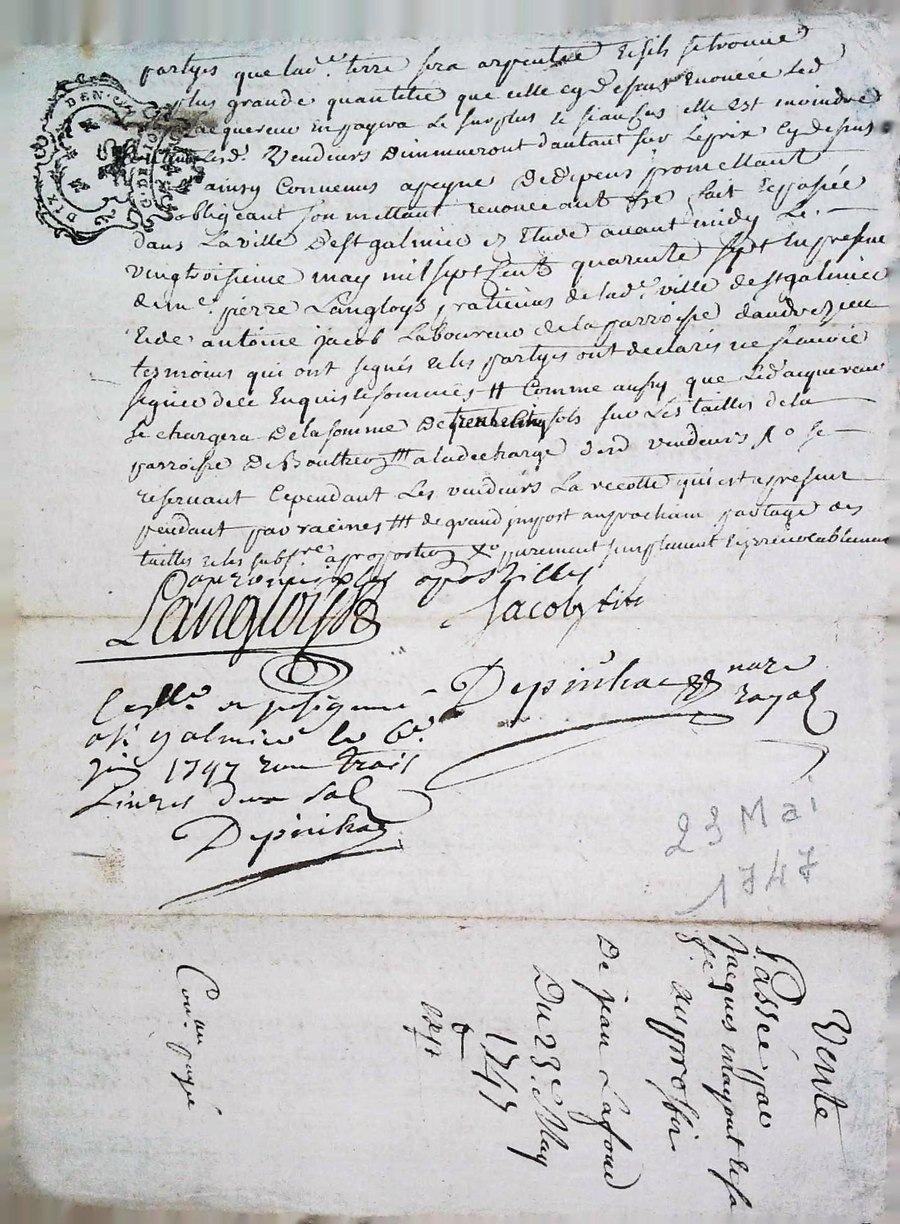 partyes que lad.e terre sera arpentée et sils se trouve
plus grande quantitié que celle cy dessus Enoncée Led
acquereur en payera Le surplus et si aufus elle est moindre
Lesd. Vendeurs Diminueront dautant sur Leprix Cy dessus
ainsy Convenus apeyne De depens promettant
obligeant soumettant renonceant etc fait et passée
dans La ville De st galmier ez Etude avant midy Le
vingtroisieme may mil sept Cent quarente sept En presence
de me. pierre Langloys praticiens de lad. ville de st galmier
Et de antoine jacob Laboureur de la parroisse dandrezieu
tesmoins qui ont signés et les partyes ont declarés ne sçavoir
signer de ce Enquis et sommés # Comme aussy que Led acquereur
se chargera De la somme De sols sur Les tailles de la
parroisse De Boutheon # a la decharge desd vendeurs
reservant Cependant Les vendeurs La recolte qui est apresent
pendant par racines # de grand impost au prochain partage des
tailles et les subs.re a proportion purement simplement et irrevocablement
apostilles
Langloys Jacob
Depinhac nore
royal
Coller et
a st galmier le 6e
juin 1747 reçu trois
Livres deux sol
Depinhac
23 Mai
1747
Vente
Passée par
Jacques mayout et sa
fe. au proffit
De jean Lafond
Du 23.e May
1747
Con. au
payé